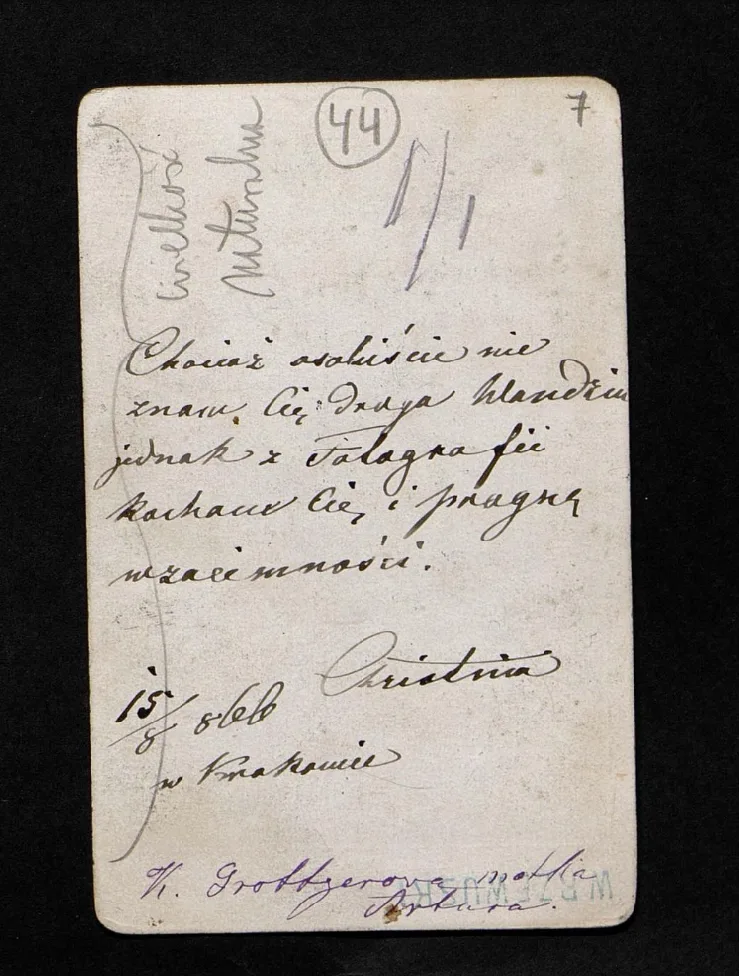 44
7
1/1
wielkość
naturalna
Chociaż osobiście nie
znam Cię droga Wandziu
jednak z Fotografii
kocham Cię i pragnę
wzaiemności.
Christina
15/8 866
w Krakowie
K. Grottgerowa matka
Artura.